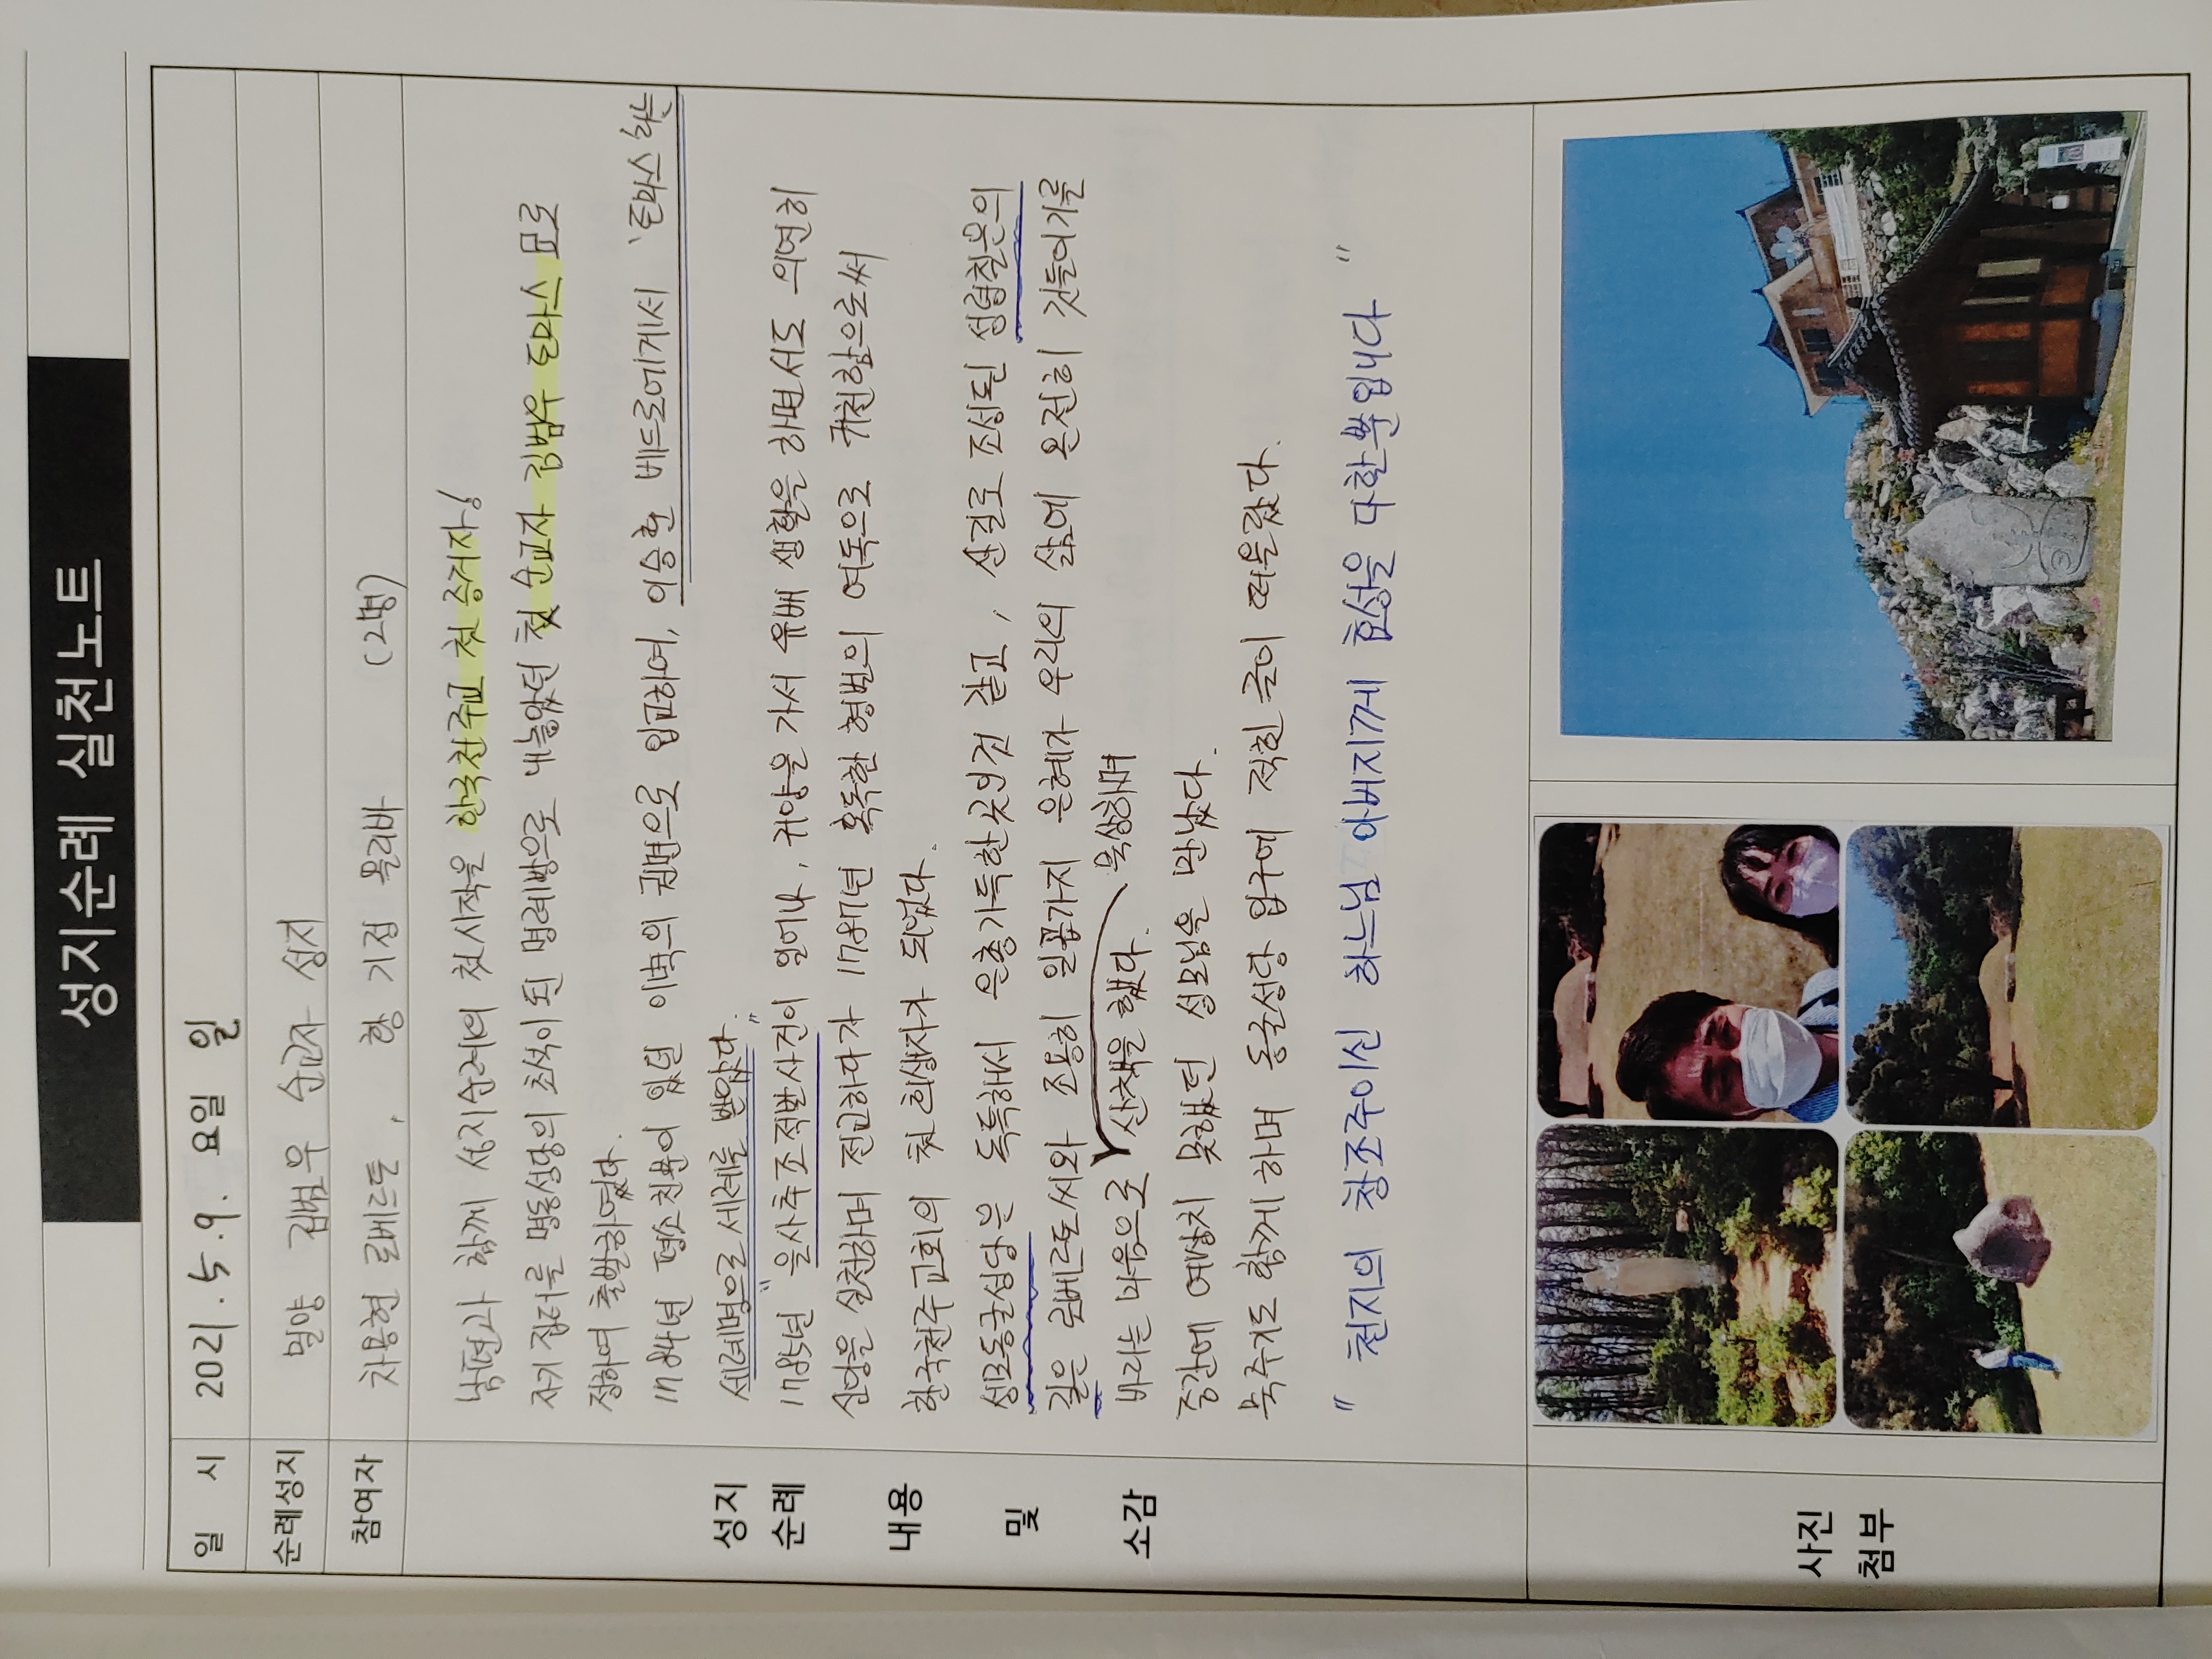 성지순례 실천노트
일 시 2021. 5. 9. 요일 일
순례성지 밀양 김범우 순교자 성지
참여자 차용현 로베르토, 황기정 올리바 (2명)
성지
순례
내용
및
소감
남편과 함께 성지순례의 첫시작을 한국천주교 첫 증거자!
자기 집터를 명동성당의 초석이 된 명례방으로 내놓았던 첫 순교자 김범우 토마스 묘로
정하여 출발하였다.
1784년 평소 친분이 있던 이벽의 권면으로 입교하여, 이승훈 베드로에게서 '토마스'라는
세례명으로 세례를 받았다.
1785년 "을사추조적발사건"이 일어나, 귀양을 가서 유배 생활을 하면서도 의연히
신앙을 실천하며 전교하다가 1787년 혹독한 형벌의 여독으로 귀천함으로써
한국천주교회의 첫 희생자가 되었다.
성모동굴성당은 독특해서 은총가득한곳인것 같고, 산길로 조성된 성령칠은의
길은 로베르도씨와 조용히 일곱가지 은혜가 우리의 삶에 온전히 깃들이기를
바라는 마음으로 묵상하며 산책을 했다.
중간에 예상치 못했던 성모님을 만났다.
묵주기도 함께 하며 동굴성당 입구에 적힌 글이 떠올랐다.
" 천지의 창조주이신 하느님 아버지께 효성을 다할뿐입니다 "
사진
첨부